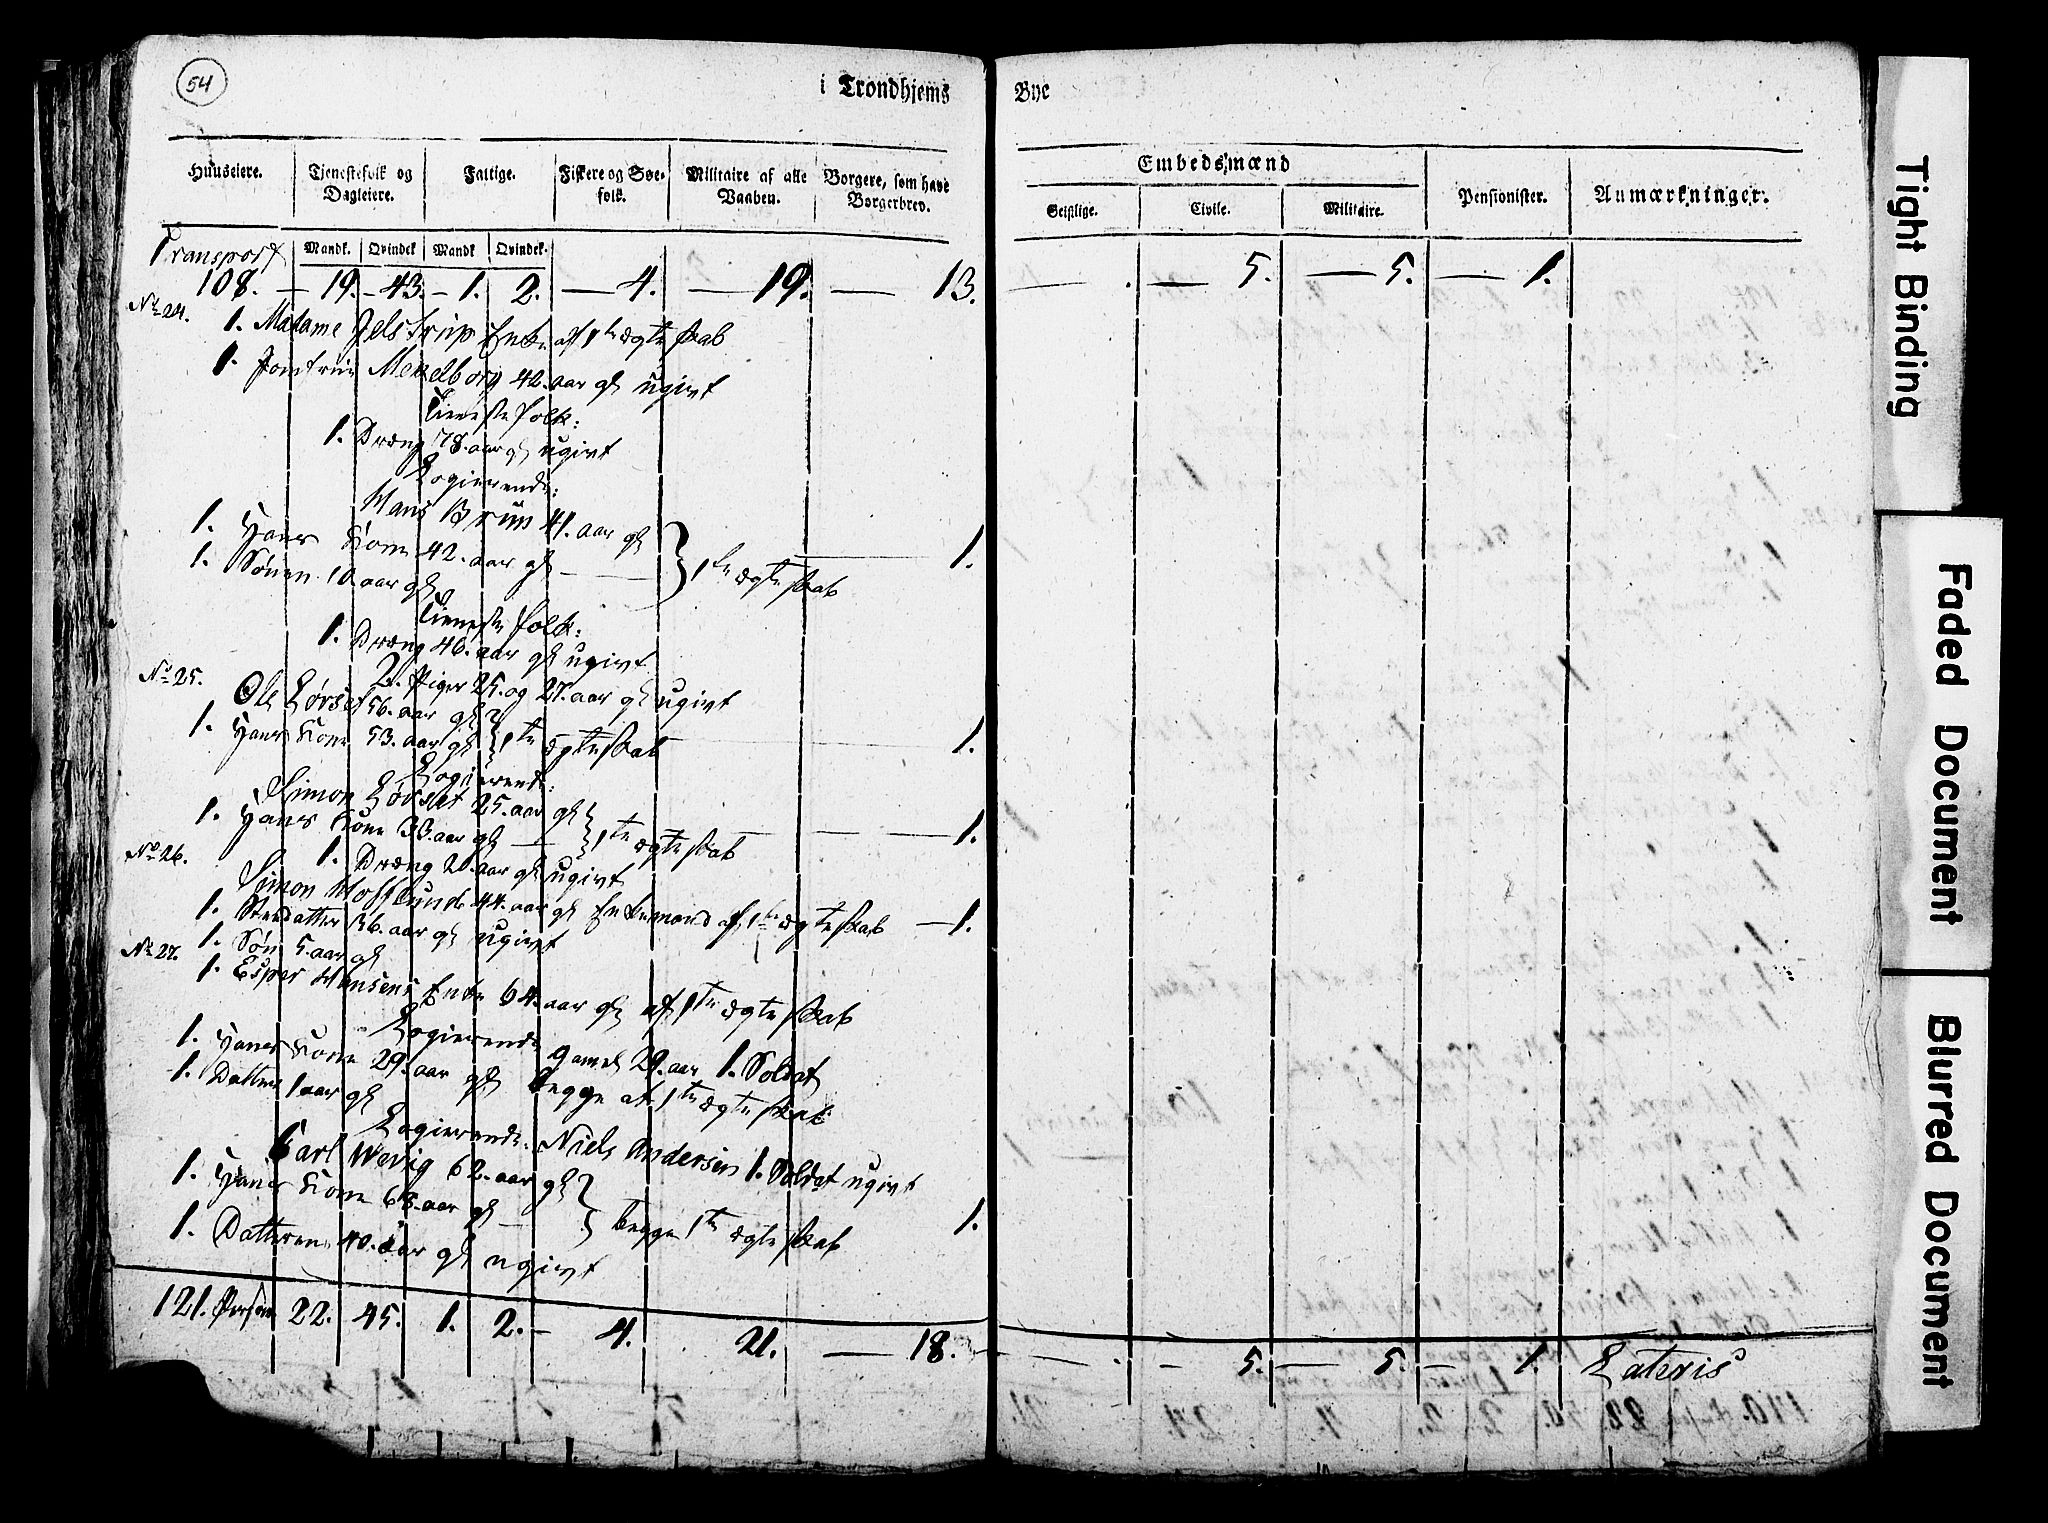 54
i Trondhjems Bye
Huuseiere. Tjenestefolk og Dagleiere. Fattige. Fiskere og Søe-folk. Militaire af alle Vaaben. Borgere, som have Borgerbrev. Embedsmænd Pensionister. Anmærkninger.
Geistlige. Civile. Militaire.
Mandk. Qvindek Mandk Qvindek.
Transport
108. — 19. — 43. — 1. 2. — 4. — 19. — 13. — . — 5. — 5. — 1.
No 24.
1. Madame Jelstrup Enke af 1te ægteskab
1. Jomfrue Mekelborg 42. aar gl ugivt
Tienestefolk:
1. Dræng 78. aar gl ugivt
Logierende:
Hans Brun 41. aar gl
1. Hans Kone 42. aar gl — } 1te ægteskab 1.
1. Sønen 10 aar gl
Tienestefolk:
1. Dræng 46. aar gl ugivt
2. Piger 25. og 27. aar gl ugivt
No 25.
Ole Lørset 56. aar gl
1. Hans Kone 53. aar gl } 1te ægteskab 1.
Logierende:
Simon Lørset 25. aar gl
1. Hans Kone 33. aar gl — } 1te ægteskab — 1.
1. Dræng 20. aar gl ugivt
No 26.
Simon 44. aar gl Enkemand af 1te ægteskab — 1.
1. Steddatter 36. aar gl ugivt
1. Søn 5. aar gl
No 27.
1. Esper Hansens Enke 64. aar gl af 1te ægteskab
Logierende
gamel 29. aar 1. Soldat
1. Hans Kone 29. aar gl begge af 1te ægteskab
1. Datter 1 aar gl
Logierende: Niels Andersen 1. Soldat ugivt
Carl Wevig 62. aar gl
1. Hans Kone 63. aar gl — } begge 1te ægteskab 1.
1. Datteren 40. aar gl ugivt
121. Persone 22. 45. 1. 2. — 4. 21. — 18. — . — 5. — 5. — 1. Lateris
Tight Binding
Faded Document
Blurred Document